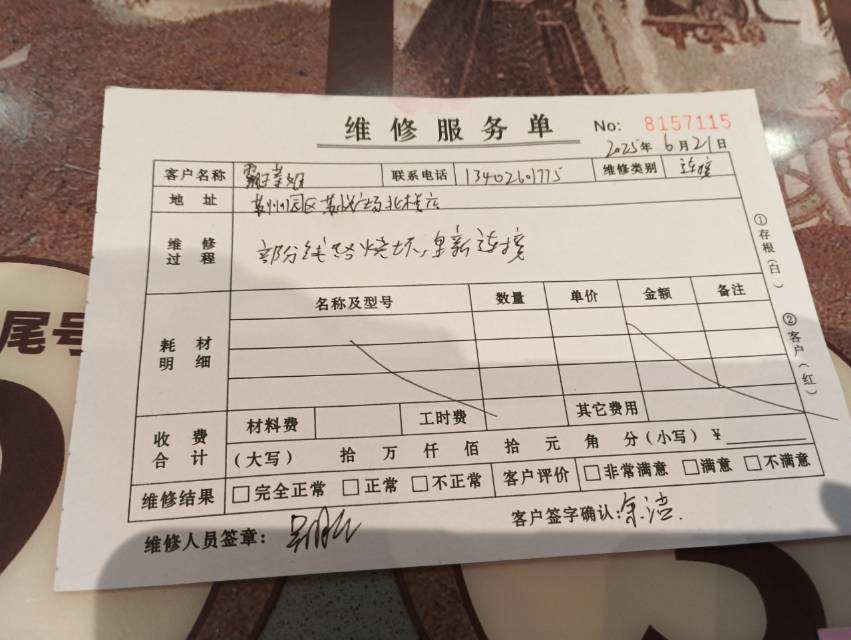 维修服务单 No: 8157115
2025年6月21日
客户名称 联系电话 13402601775 维修类别
地址 苏州园区
维修过程 部分线路烧坏,重新连接
名称及型号 数量 单价 金额 备注
耗材明细
收费合计 材料费 工时费 其它费用
(大写) 拾 万 仟 佰 拾 元 角 分(小写) ¥
维修结果 □完全正常 □正常 □不正常 客户评价 □非常满意 □满意 □不满意
维修人员签章: 客户签字确认:余洁.
①存根(白)
②客户(红)
尾号